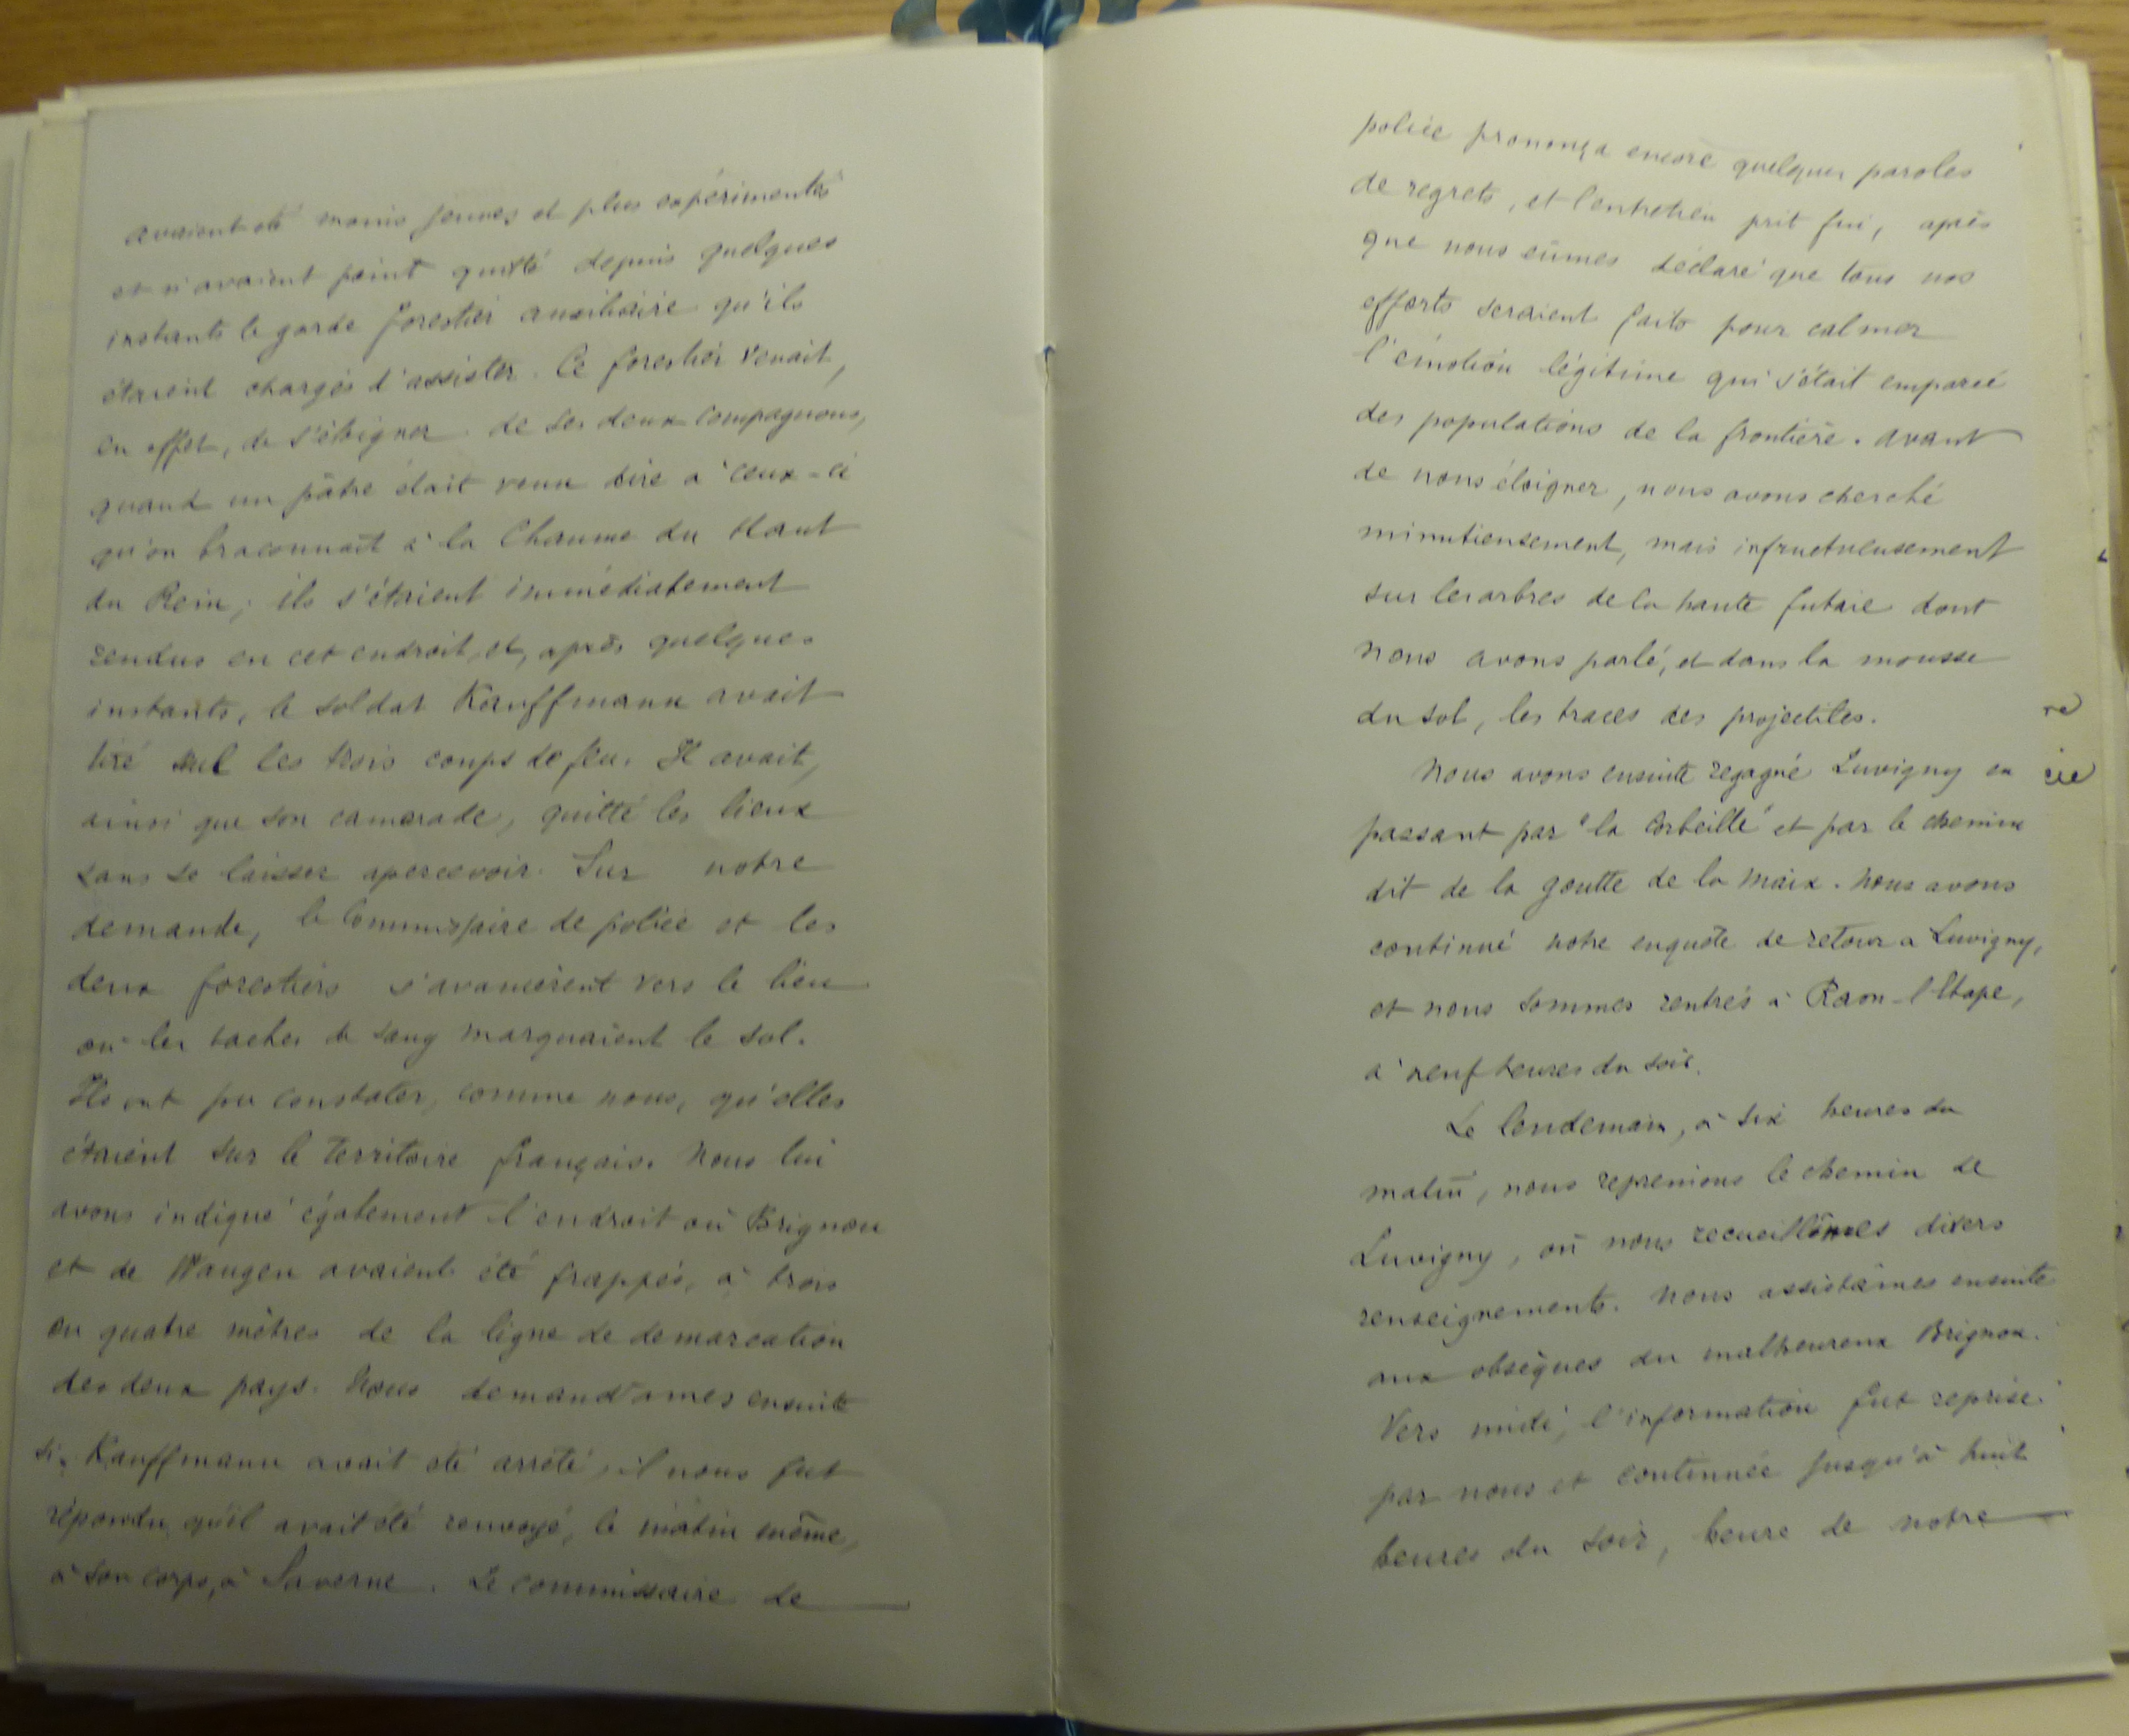 avaient été moins jeunes et plus expérimentés
et n'avaient point quitté depuis quelques
instants le garde forestier auxiliaire qu'ils
étaient chargés d'assister. Ce forestier venait,
en effet, de s'éloigner de ses deux compagnons,
quand un pâtre était venu dire à ceux-ci
qu'on braconnait à la Chaume du Haut
du Rein; ils s'étaient immédiatement
rendus en cet endroit, et, après quelques
instants, le soldat Kauffmann avait
tiré seul les trois coups de feu. Il avait,
ainsi que son camarade, quitté les lieux
sans se laisser apercevoir. Sur notre
demande, le Commissaire de police et les
deux forestiers s'avancèrent vers le lieu
où les taches de sang marquaient le sol.
Ils ont pu constater, comme nous, qu'elles
étaient sur le territoire français. Nous lui
avons indiqué également l'endroit où Brignon
et de Wangen avaient été frappés, à trois
ou quatre mètres de la ligne de démarcation
des deux pays. Nous demandâmes ensuite
si Kauffmann avait été arrêté, il nous fut
répondu qu'il avait été renvoyé, le matin même,
à son corps, à Saverne. Le commissaire de
police prononça encore quelques paroles
de regrets, et l'entretien prit fin, après
que nous eûmes déclaré que tous nos
efforts seraient faits pour calmer
l'émotion légitime qui s'était emparée
des populations de la frontière. Avant
de nous éloigner, nous avons cherché
minutieusement, mais infructueusement
sur les arbres de la haute futaie dont
nous avons parlé, et dans la mousse
du sol, les traces des projectiles.
Nous avons ensuite regagné Luvigny en
passant par "la Corbeille" et par le chemin
dit de la goutte de la Maix. Nous avons
continué notre enquête de retour à Luvigny,
et nous sommes rentrés à Raon-l'Etape,
à neuf heures du soir.
Le lendemain, à six heures du
matin, nous reprenions le chemin de
Luvigny, où nous recueillîmes divers
renseignements. Nous assistâmes ensuite
aux obsèques du malheureux Brignon.
Vers midi, l'information fut reprise
par nous et continuée jusqu'à huit
heures du soir, heure de notre